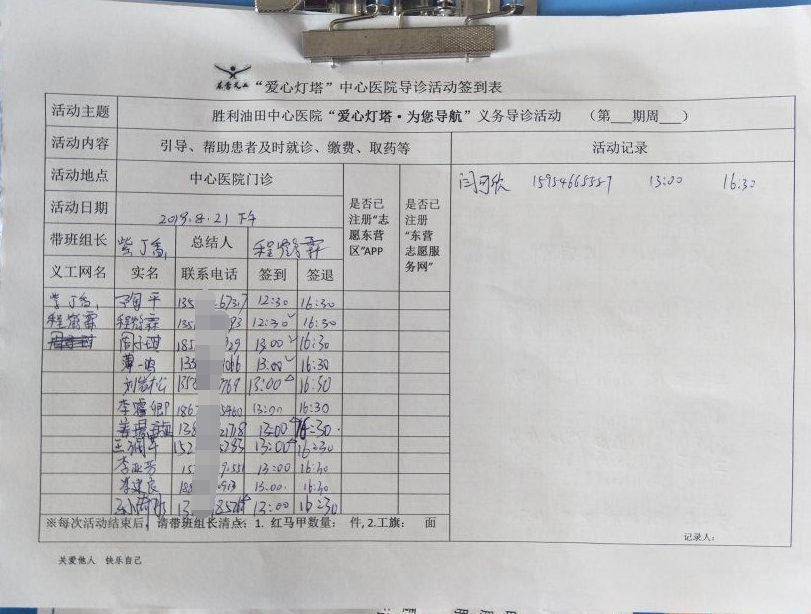 东营义工 “爱心灯塔”中心医院导诊活动签到表
活动主题 胜利油田中心医院“爱心灯塔·为您导航”义务导诊活动 （第___期周___）
活动内容 引导、帮助患者及时就诊、缴费、取药等 活动记录
活动地点 中心医院门诊 是否已注册“志愿东营区”APP 是否已注册“东营志愿服务网”
闫可欣 15954665557 13:00 16:30
活动日期 2019.8.21 下午
带班组长 紫丁香 总结人 程箭霖
义工网名 实名 联系电话 签到 签退
紫丁香 平 135 6737 12:30 16:30
程箭霖 程箭霖 135 93 12:30 16:30
周子琪 185 929 13:00 16:30
薄一鸣 135 1066 13:00 16:30
刘岩松 135 7769 13:00 16:30
李 卿 186 3460 13:00 16:30
姜 138 21718 13:00 16:30
王 152 5233 13:00 16:30
李亚芳 15 9551 13:00 16:30
李建良 188 0913 13:00 16:30
13 8528 13:00 16:30
※每次活动结束后，请带班组长清点：1. 红马甲数量： 件, 2.工旗： 面
记录人：
关爱他人 快乐自己